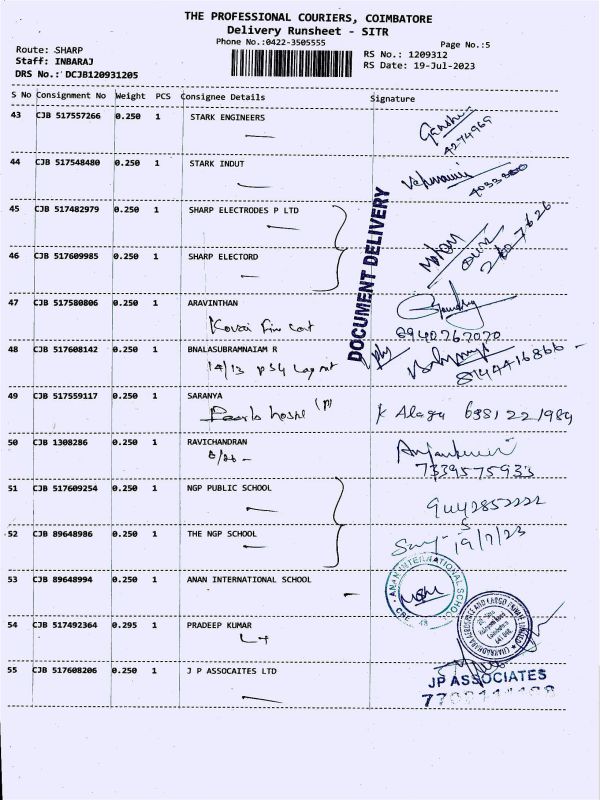 THE PROFESSIONAL COURIERS, COIMBATORE
Delivery Runsheet - SITR
Phone No.:0422-3505555
Page No.:5
Route: SHARP
Staff: INBARAJ
DRS No.: DCJB120931205
RS No.: 1209312
RS Date: 19-Jul-2023
S No Consignment No Weight PCS Consignee Details Signature
43 CJB 517557266 0.250 1 STARK ENGINEERS
4274969
44 CJB 517548480 0.250 1 STARK INDUT
4033300
45 CJB 517482979 0.250 1 SHARP ELECTRODES P LTD
DOCUMENT DELIVERY
46 CJB 517609985 0.250 1 SHARP ELECTORD
Mohan
47 CJB 517580806 0.250 1 ARAVINTHAN
Kovai
8940262020
48 CJB 517608142 0.250 1 BNALASUBRAMNAIAM R
14/13 PSG
8144416866
49 CJB 517559117 0.250 1 SARANYA
K Alagu 6381221989
50 CJB 1308286 0.250 1 RAVICHANDRAN
7339575933
51 CJB 517609254 0.250 1 NGP PUBLIC SCHOOL
9442852222
52 CJB 89648986 0.250 1 THE NGP SCHOOL
19/7/23
53 CJB 89648994 0.250 1 ANAN INTERNATIONAL SCHOOL
ANAN INTERNATIONAL SCHOOL
54 CJB 517492364 0.295 1 PRADEEP KUMAR
55 CJB 517608206 0.250 1 J P ASSOCAITES LTD
JP ASSOCIATES